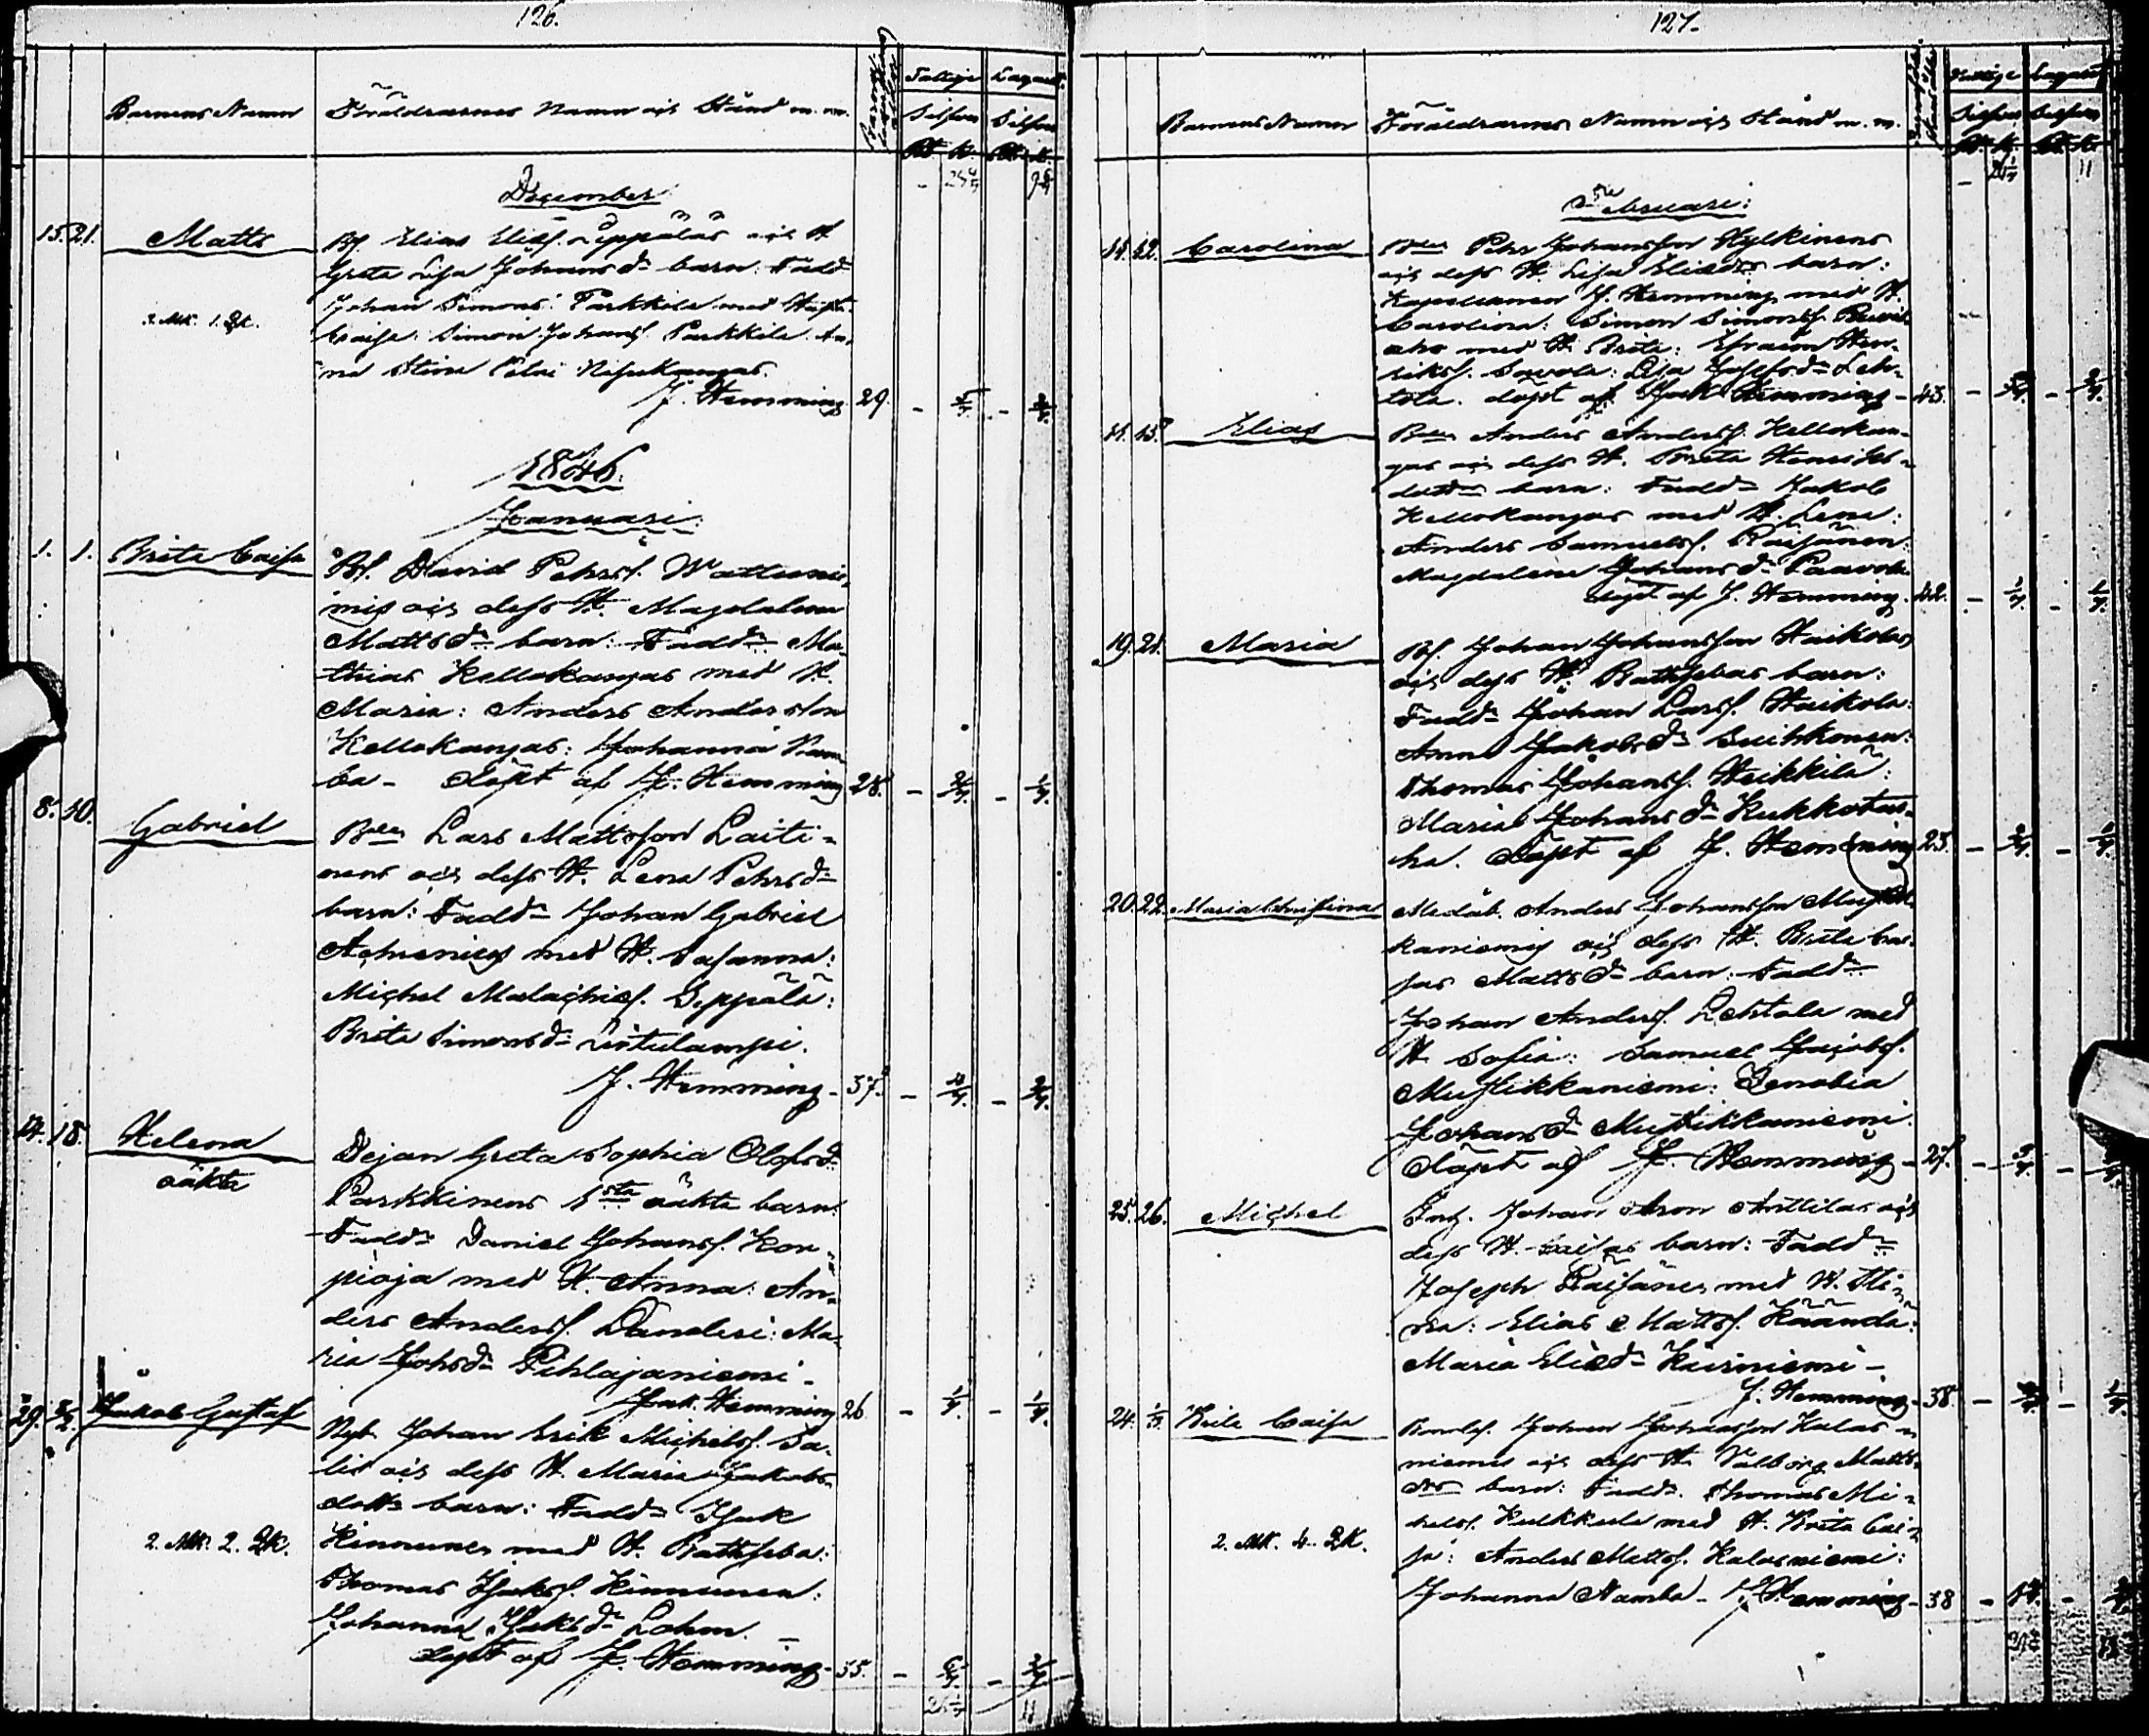 126.
Barnens Namn
Föräldrarnes Namn och Stånd m. m.
Fattige
Lazarett
Silfver
Silfver
December
15. 21.
Matts
Bf. Elias Eliæs. Seppäläs och H.
Greta Lisa Johansdr barn. Fadd.
Johan Simons. Parkkila med Hust.
Caisa. Simon Johans. Parkkila. An-
na Stina
J. Hemming
29.
2. Mk. 1. Qk.
1846.
Januari:
1. 1.
Brita Caisa
Bf. David Pehrs. Wattunie-
mis och dess H. Magdalena
Mattsdr barn. Faddr Ma-
thias Kellokangas med H.
Maria: Anders Andersson
Kellokangas: Johanna Nam-
ba - Döpt af J. Hemming
28.
8. 10.
Gabriel
Bden Lars Mattsson Laiti-
nens och dess H. Lena Pehrsdr
barn: Faddr Johan Gabriel
med H. Susanna:
Michel Malachias. Seppälä:
Brita Simonsdr Liitulampi.
J. Hemming -
37.
14. 18.
Helena
oäkta
Pejan Greta Sophia Olofsdr
Parkkinens 1sta oäkta barn:
Faddr Daniel Johans. Kor-
pioja med H. Anna: An-
ders Anders. Danderi: Ma-
ria Johsdr Pihlajaniemi -
Isak Hemming
26.
29. 2/2.
Jakob Gustaf
Nyb. Johan Erik Michels. Sa-
lis och dess H. Maria Jakobs-
dottr barn: Faddr Isak
Kinnunen med H. Bathseba:
Thomas Isaks. Kinnunen:
Johanna Isaksdr Lohm. -
döpt af J. Hemming -
35.
2. Mk. 2. Qk.
11
127.
Barnens Namn
Föräldrarnes Namn och Stånd m. m.
Fattige
Lazarett
Silfver
Silfver
11
Februari:
11. 12.
Carolina
Bden Pehr Johansson Hylkinens
och dess H. Lisa Eliædr barn:
Kapellanen J. Hemming med H.
Carolina: Simon Simons.
aho med H. Brita: Efraim Hen-
riks. Savola: Lisa Josefsdr Leh-
tola. döpt af Isak Hemming -
43.
11. 15.
Elias
Bden Anders Anders. Kellokan-
gas och dess H. Brita Henriks-
dottr barn: Faddr Jakob
Kellokangas med H. Lena:
Anders Samuels. Räisänen:
Magdalena Johansdr Paavola
döpt af J. Hemming.
42.
19. 21.
Maria
Bf. Johan Johansson Haikolas
och dess H. Bathsebas barn:
Faddr Johan Lars. Haikola:
Anna Jakobsdr Suihkonen:
Thomas Johans. Heikkilä:
Maria Johansdr Kukkotus-
ha. Döpt af J. Hemming
23.
20. 22.
Maria Christina
Medåb. Anders Johansson Mustik-
kaniemis och dess H. Brita Cai-
sas Mattsdr barn. Faddr
Johan Anders. Lehtola med
H. Sofia: Samuel Jacobs.
Mustikkaniemi: Zenobia
Johansdr Mustikkaniemi.
Döpt af J. Hemming -
27.
25. 26.
Michel
Inh. Johan Aron Anttilas och
dess H. Caisas barn: Faddr
Joseph Räisänen med H. Sti-
na: Elias Matts. Käändä:
Maria Eliædr Kurniemi -
J. Hemming -
38.
24. 1/3.
Brita Caisa
Bondes. Johan Johansson Kalas-
niemis och dess H. Valborg Matts-
dtr barn: Faddr. Thomas Mi-
chels. Kukkula med H. Brita Cai-
sa: Anders Matts. Kalasniemi:
Johanna Namba - J. Hemming -
38
2. Mk. 4. Qk.